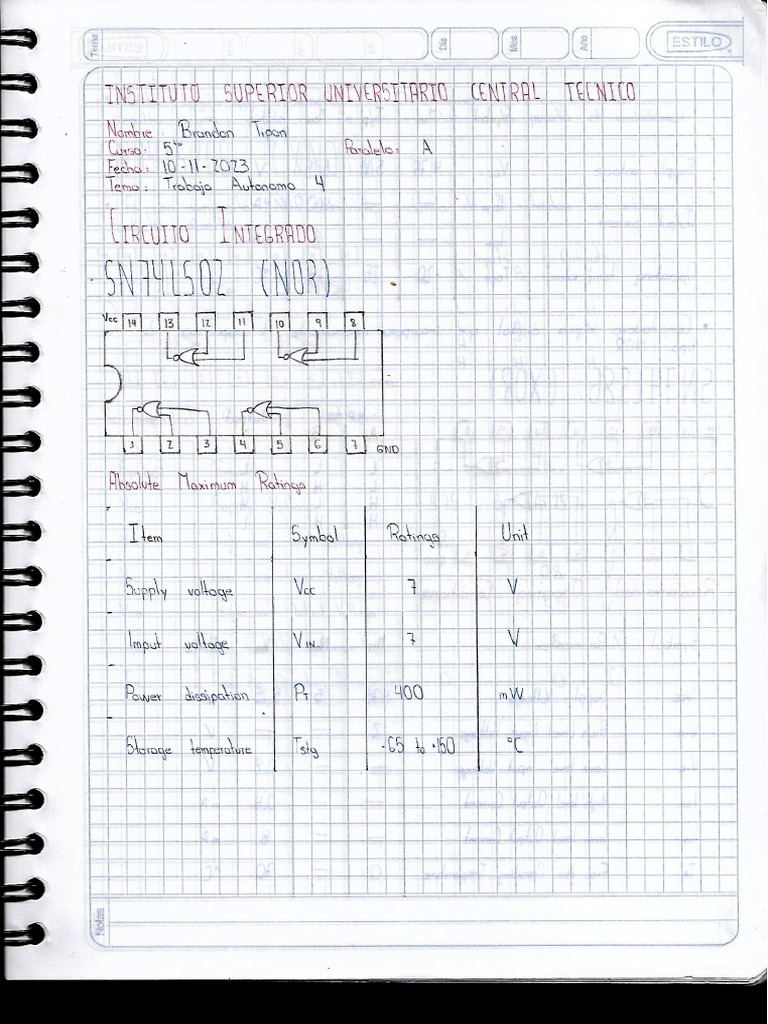 Tema
Día
Mes
Año
ESTILO
INSTITUTO SUPERIOR UNIVERSITARIO CENTRAL TECNICO
Nombre: Brandon Tipan
Curso: 5to Paralelo: A
Fecha: 10-11-2023
Tema: Trabajo Autonomo 4
CIRCUITO INTEGRADO
SN74LS02 (NOR)
Vcc 14 13 12 11 10 9 8
1 2 3 4 5 6 7 GND
Absolute Maximum Ratings
Item Symbol Ratings Unit
Supply voltage Vcc 7 V
Imput voltage VIN. 7 V
Power dissipation PT 400 mW
Storage temperature Tstg -65 to +150 °C
Notas